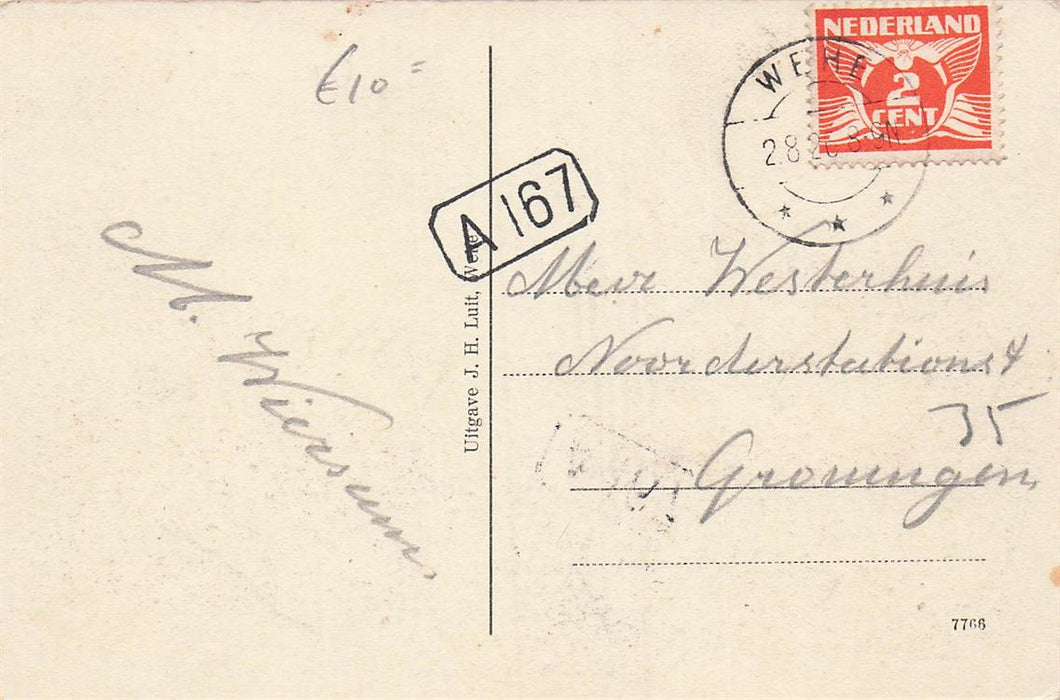 €10=
NEDERLAND
2
CENT
WEHE
2.8.2 8-9N
A 167
Uitgave J. H. Luit, Wehe
M. Wiersum
Mevr Westerhuis
Noorderstationst
35
Groningen,
7766